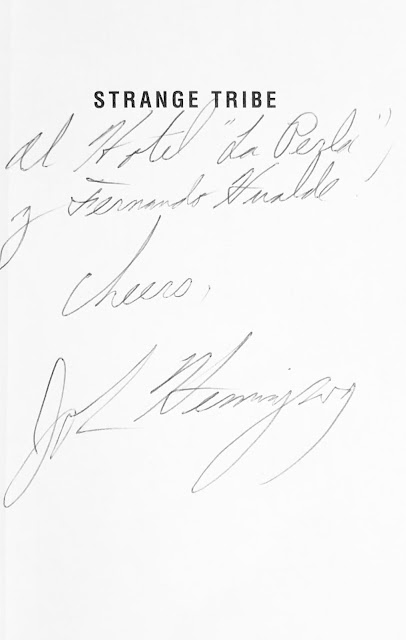 STRANGE TRIBE
Al Hotel "La Perla",
y Fernando Hualde.
Cheers,
John Hemingway